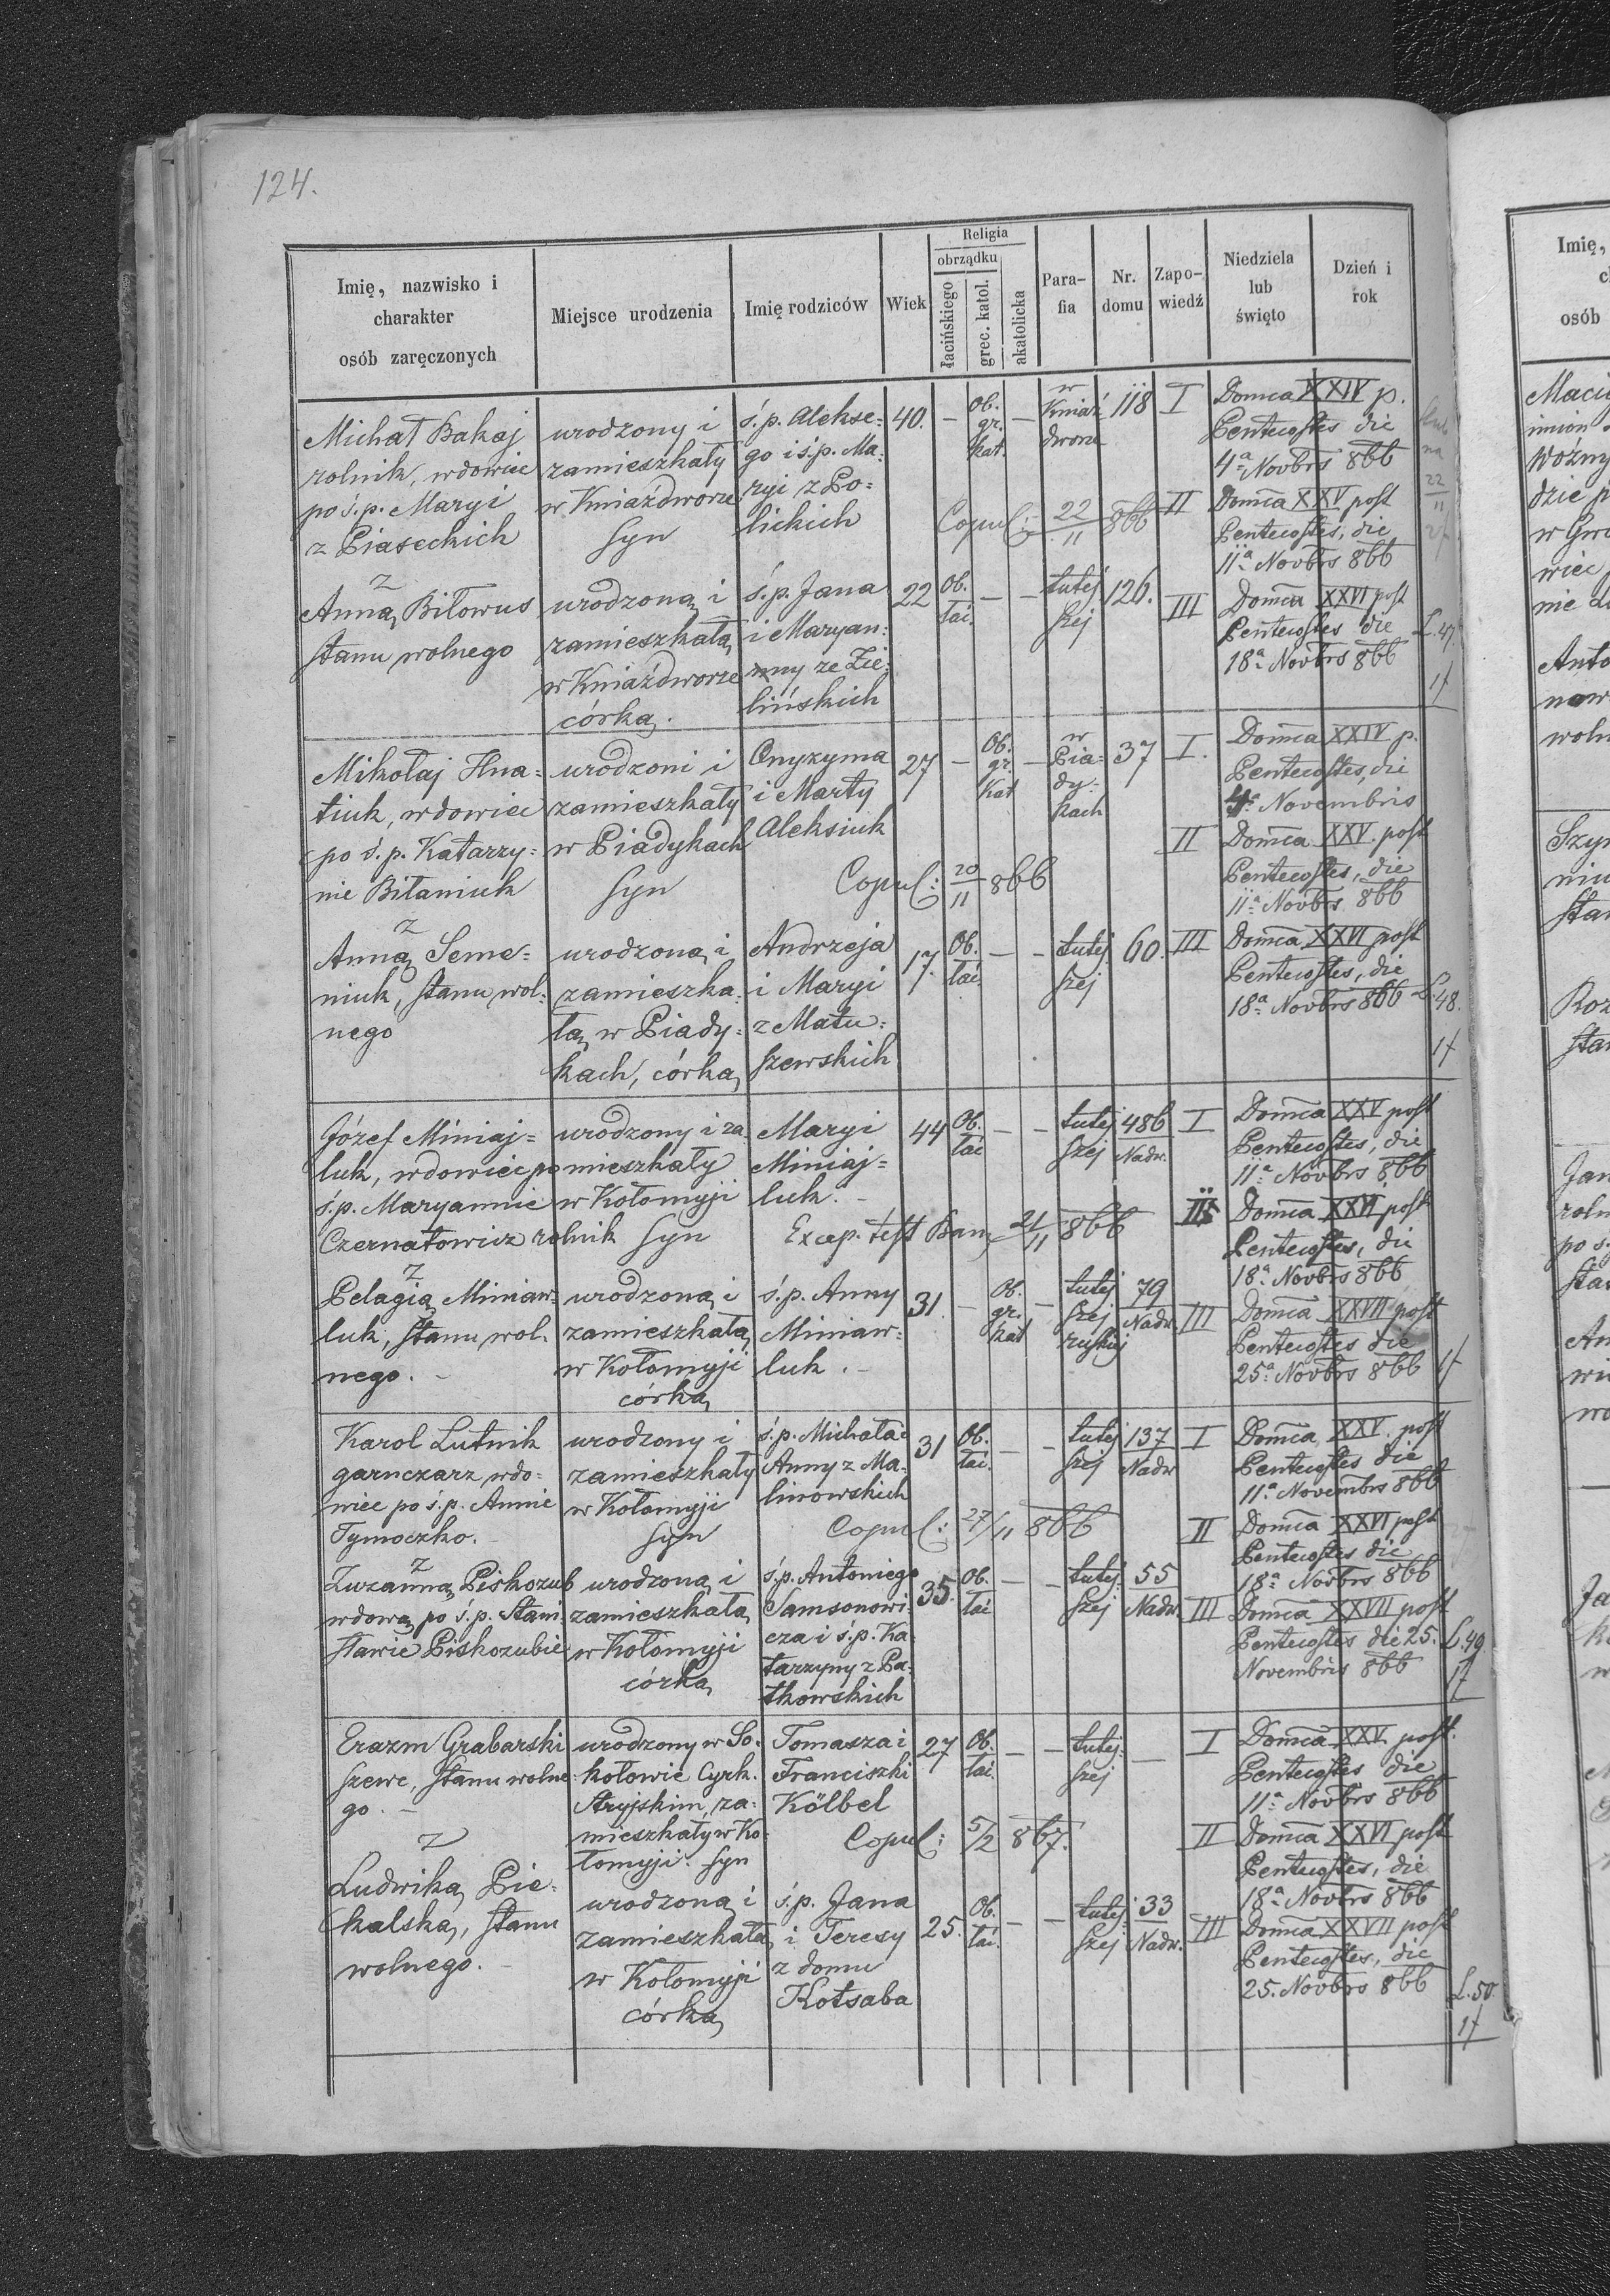 124.
Imię, nazwisko i
charakter
osób zaręczonych
Miejsce urodzenia
Imię rodziców
Wiek
Religia
obrządku
łacińskiego
grec. katol.
akatolicka
Para-
fia
Nr.
domu
Zapo-
wiedź
Niedziela
lub
święto
Dzień i
rok
Michał Bakaj
rolnik, wdowiec
po ś.p. Maryi
z Piaseckich
urodzony i
zamieszkały
w Kniaźdworze
syn
ś.p. Alekse=
go i ś.p. Ma=
ryi z Po=
lickich
40.
—
Ob.
gr.
kat.
—
w
Kniaź
dworze
118
I
Domca XXIV p.
Pentecostes die
4ª Novbris 866
Copul: 22/11 866
II
Domca XXV post
Pentecostes, die
11ª Novbrs 866
z
Anną Biłowus
stanu wolnego
urodzoną i
zamieszkałą
w Kniaźdworze
córką.
ś.p. Jana
i Maryan=
nny ze Zie=
lińskich
22
Ob.
łać.
—
—
tutej
szej
126.
III
Domca XXVI post
Pentecostes die
18ª Novbrs 866
L. 47
1f
Mikołaj Hna=
tiuk, wdowiec
po ś.p. Katarzy=
nie Biłaniuk
urodzoni i
zamieszkały
w Piadykach
syn
Onyzyma
i Marty
Aleksiuk
27
—
Ob.
gr.
kat
—
w
Pia=
dy=
kach
37
I.
Domca XXIV p.
Pentecostes, die
4ª Novembris
Copul: 20/11 866
II
Domca XXV. post
Pentecostes, die
11ª Novbrs 866
z
Anną Seme=
niuk, stanu wol=
nego
urodzoną i
zamieszka=
łą w Piady=
kach, córką
Andrzeja
i Maryi
z Matu=
szewskich
17.
Ob.
łać.
—
—
tutej
szej
60.
III
Domca XXVI post
Pentecostes, die
18ª Novbrs 866
L. 48.
1f
Józef Miniaj=
luk, wdowiec po
ś.p. Maryannie
Czernatowicz rolnik
urodzony i za
mieszkały
w Kołomyji
syn
Maryi
Miniaj=
luk. —
44
Ob.
łać
—
—
tutej
szej
486
Nadw.
I
Domca XXV post
Pentecostes, die
11ª Novbrs 866
Excep. test Bann 21/11 866
II
Domca XXVI post
Pentecostes, die
18ª Novbrs 866
z
Pelagią Miniaw=
luk, stanu wol=
nego. —
urodzoną i
zamieszkałą
w Kołomyji
córką
ś.p. Anny
Miniaw=
luk. —
31.
—
Ob.
gr.
kat
—
tutej
szej
ruskiej
79
Nadw.
III
Domca XXVII post
Pentecostes die
25ª Novbrs 866
1f
Karol Lutnik
garnczarz wdo=
wiec po ś.p. Annie
Tymoczko.
urodzony i
zamieszkały
w Kołomyji
syn
ś.p. Michała i
Anny z Ma=
linowskich
31
Ob.
łać.
—
—
tutej
szej
137
Nadw
I
Domca XXV. post
Pentecostes die
11ª Novembrs 866
Copul: 27/11 866
II
Domca XXVI post
Pentecostes die
18ª Novbrs 866
z
Zuzanną Piskozub
wdową po ś.p. Stani=
sławie Piskozubie
urodzoną i
zamieszkałą
w Kołomyji
córką
ś.p. Antoniego
Samsonowi=
cza i ś.p. Ka=
tarzyny z Pa=
tkowskich
35.
Ob.
łać
—
—
tutej
szej
55
Nadw.
III
Domca XXVII post
Pentecostes die 25.
Novembris 866
L. 49
1f
Erazm Grabarski
szewc, stanu wolne=
go. —
urodzony w So=
kołowie Cyrk.
Stryjskim, za=
mieszkały w Ko=
łomyji. syn
Tomasza i
Franciszki
Kölbel
27
Ob.
łać.
—
—
tutej=
szej
—
I
Domca XXV. post.
Pentecostes die
11ª Novbrs 866
Copul: 5/2 867.
II
Domca XXVI post
Pentecostes, die
18ª Novbrs 866
z
Ludwiką Pie=
kalską, stanu
wolnego. —
urodzoną i
zamieszkałą
w Kołomyji
córką
ś.p. Jana
i Teresy
z domu
Kotsaba
25.
Ob.
łać.
—
—
tutej
szej
33
Nadw.
III
Domca XXVII post
Pentecostes, die
25. Novbrs 866
L. 50.
1f